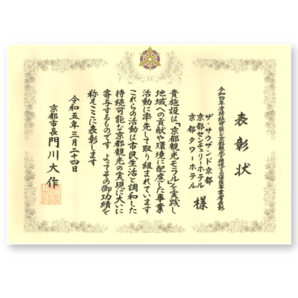 表彰状
ザ・サウザンド京都
京都センチュリーホテル
京都タワーホテル
様
貴施設は、「京都観光モラル」を実践し
地域への貢献や環境に配慮した事業
活動に率先して取り組まれています
これらの活動は市民生活と調和した
持続可能な京都観光の実現に大いに
寄与するものです よってその御功績を
称えここに表彰します
令和五年三月二十四日
京都市長 門川大作